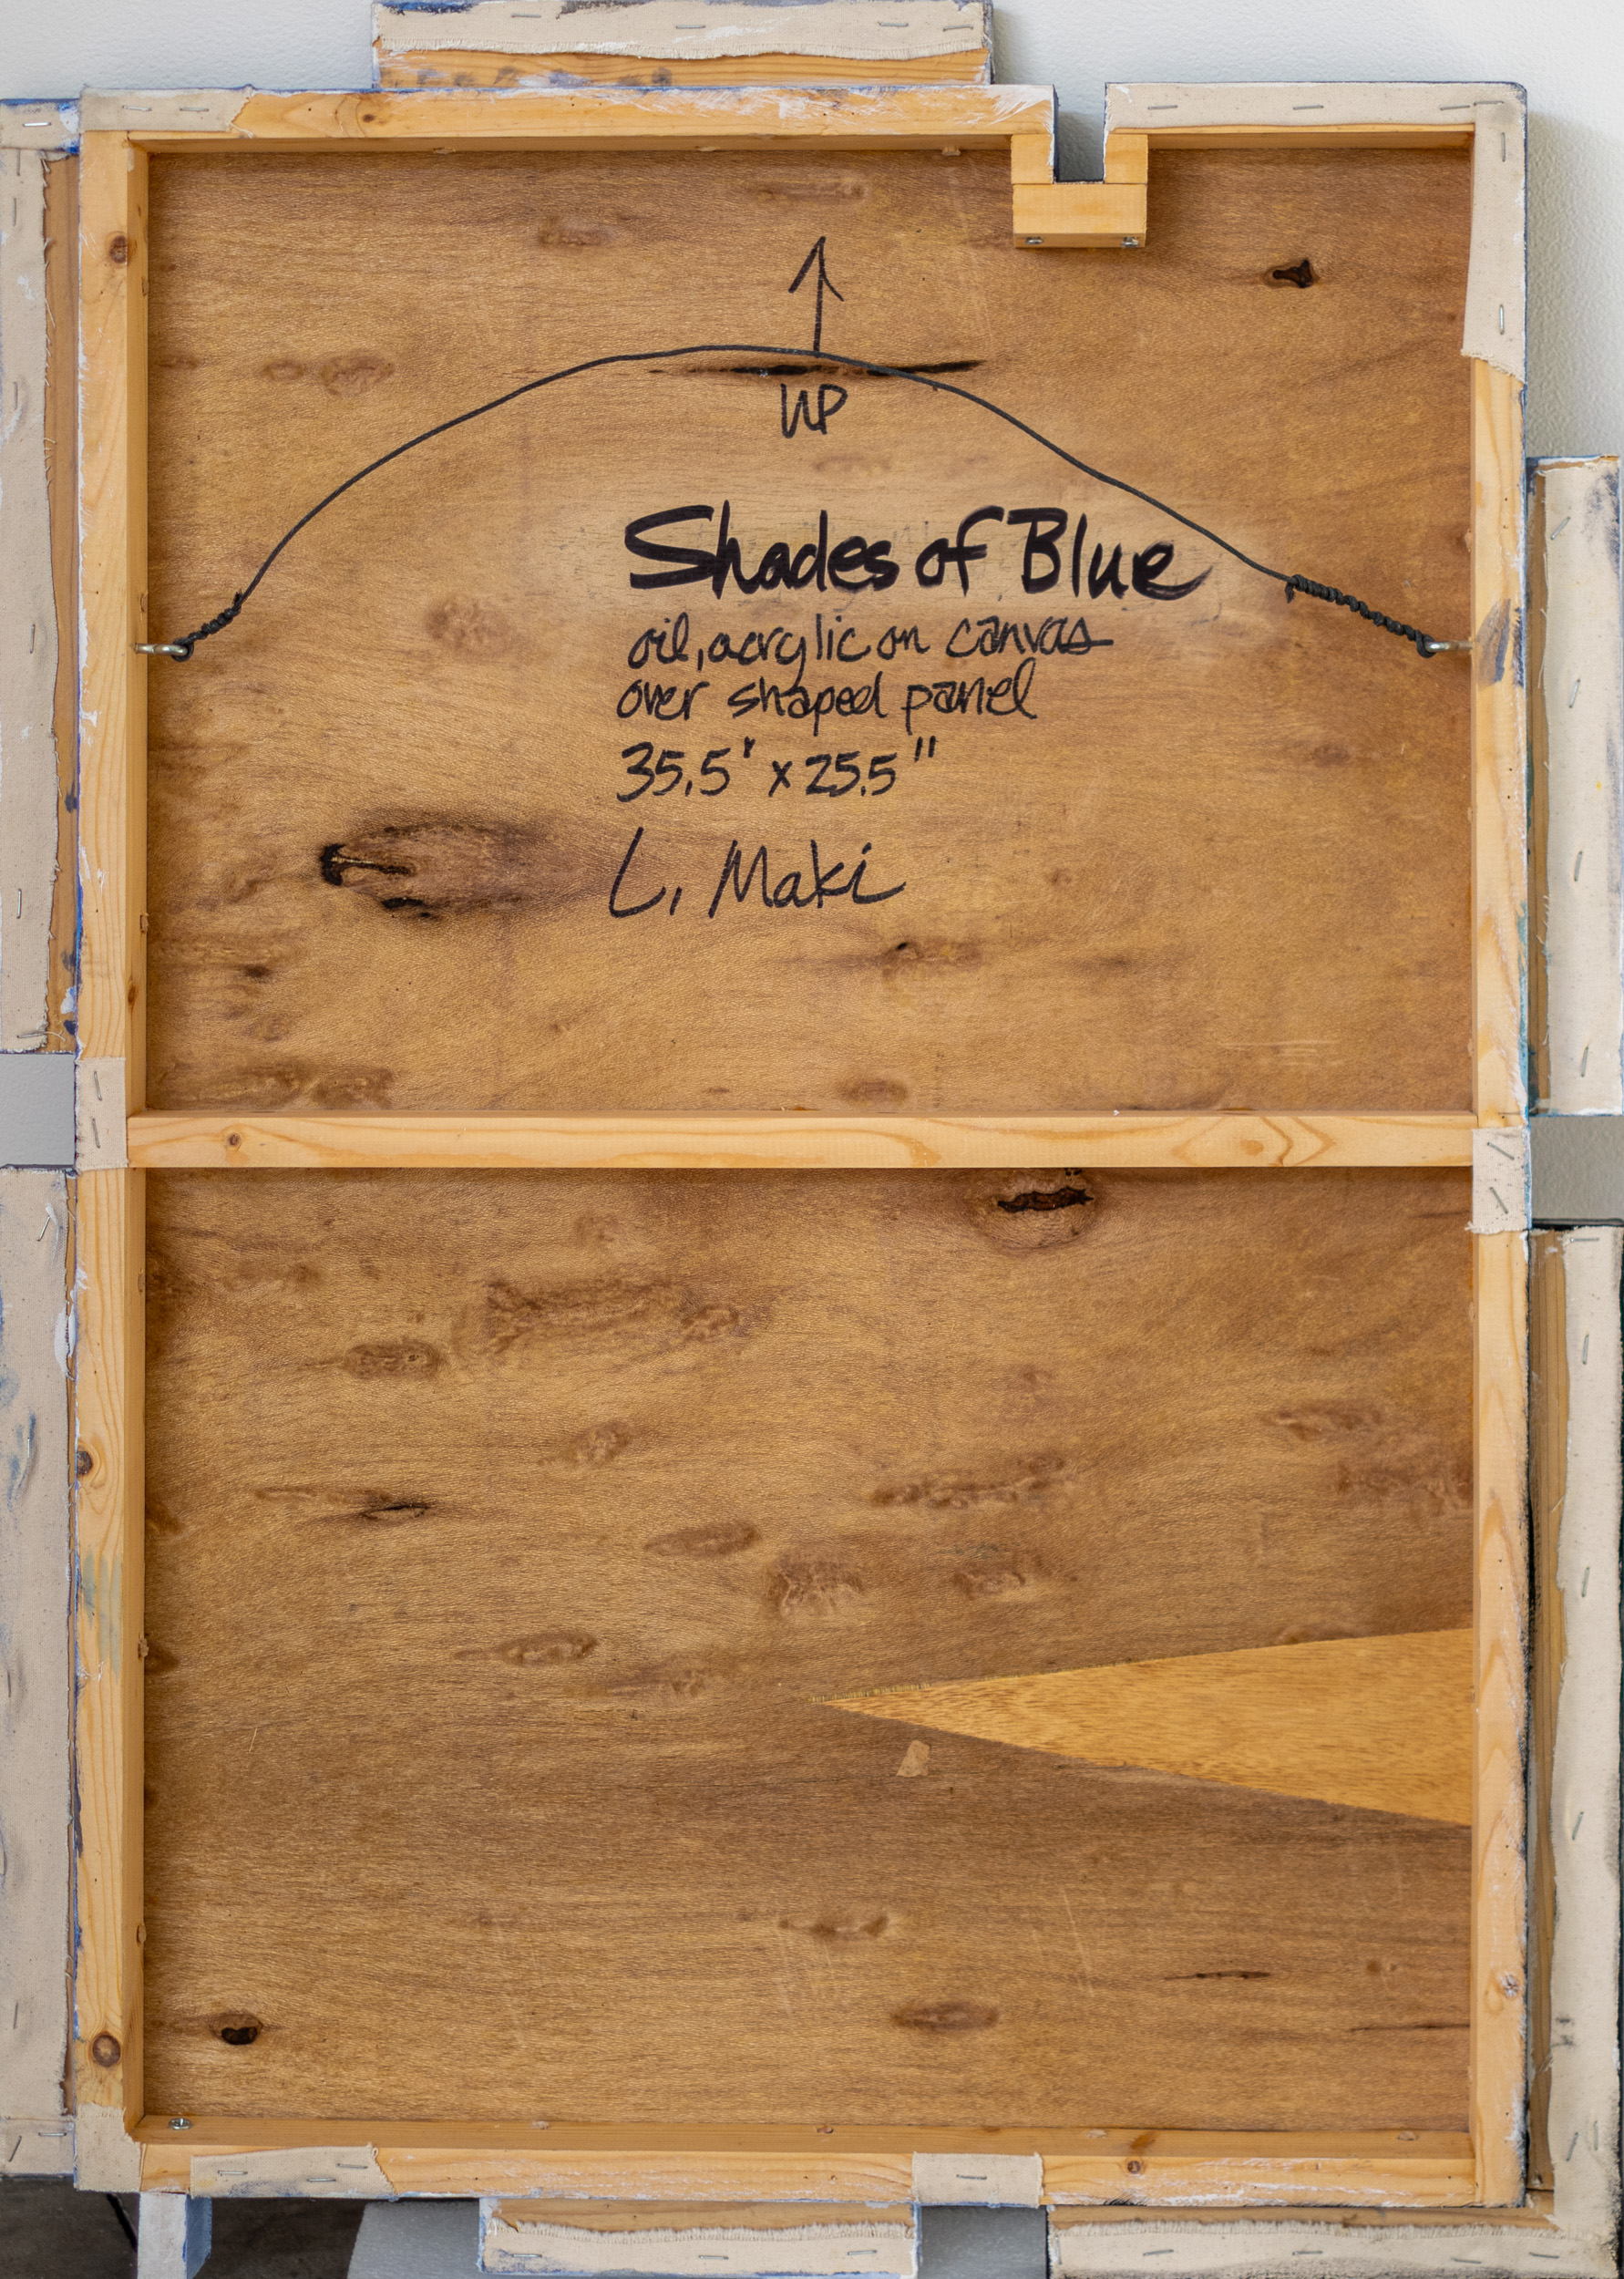 UP
Shades of Blue
oil, acrylic on canvas
over shaped panel
35.5" x 25.5"
L. Maki